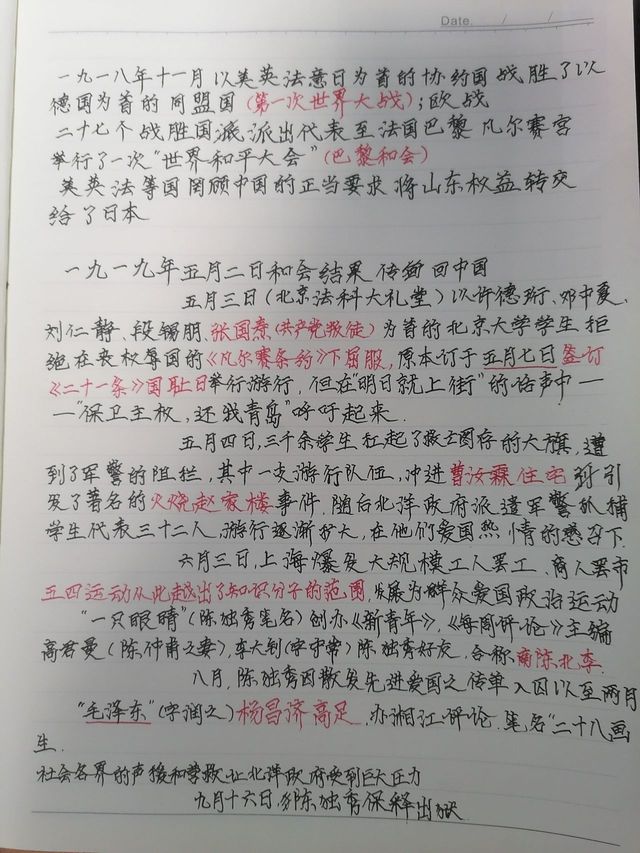 Date.
一九一八年十一月以美英法意日为首的协约国战胜了以
德国为首的同盟国(第一次世界大战);欧战
二十七个战胜国派,派出代表至法国巴黎凡尔赛宫
举行了一次"世界和平大会"(巴黎和会)
美英法等国罔顾中国的正当要求将山东权益转交
给了日本
一九一九年五月二日和会结果传回中国
五月三日(北京法科大礼堂)以许德珩、邓中夏、
刘仁静、段锡朋、张国焘(共产党叛徒)为首的北京大学学生拒
绝在丧权辱国的《凡尔赛条约》下屈服,原本订于五月七日签订
《二十一条》国耻日举行游行,但在"明日就上街"的话声中—
—"保卫主权,还我青岛"呼吁起来.
五月四日,三千余学生扛起了救亡图存的大旗,遭
到了军警的阻拦,其中一支游行队伍,冲进曹汝霖住宅引
发了著名的火烧赵家楼事件,随后北洋政府派遣军警抓捕
学生代表三十二人,游行逐渐扩大,在他们爱国热情的感召下.
六月三日,上海爆发大规模工人罢工、商人罢市
五四运动从此越出了知识分子的范围,发展为群众爱国政治运动
"一只眼睛"(陈独秀笔名)创办《新青年》,《每周评论》主编
高君曼(陈仲甫之妻),李大钊(字守常)陈独秀好友,合称南陈北李.
八月,陈独秀因散发先进爱国之传单入囚以至两月
"毛泽东"(字润之)杨昌济高足,办湘江评论.笔名"二十八画
生.
社会各界的声援和营救让北洋政府受到巨大压力
九月十六日,陈独秀保释出狱.